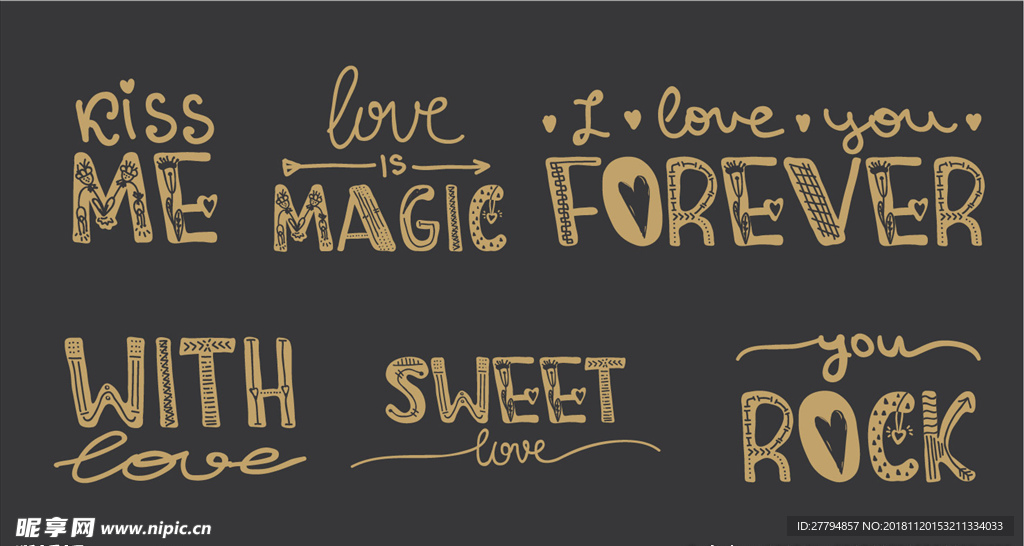 Kiss
ME
love
IS
MAGIC
I love you
FOREVER
WITH
love
SWEET
love
you
ROCK
昵享网 www.nipic.cn
ID:27794857 NO:20181120153211334033